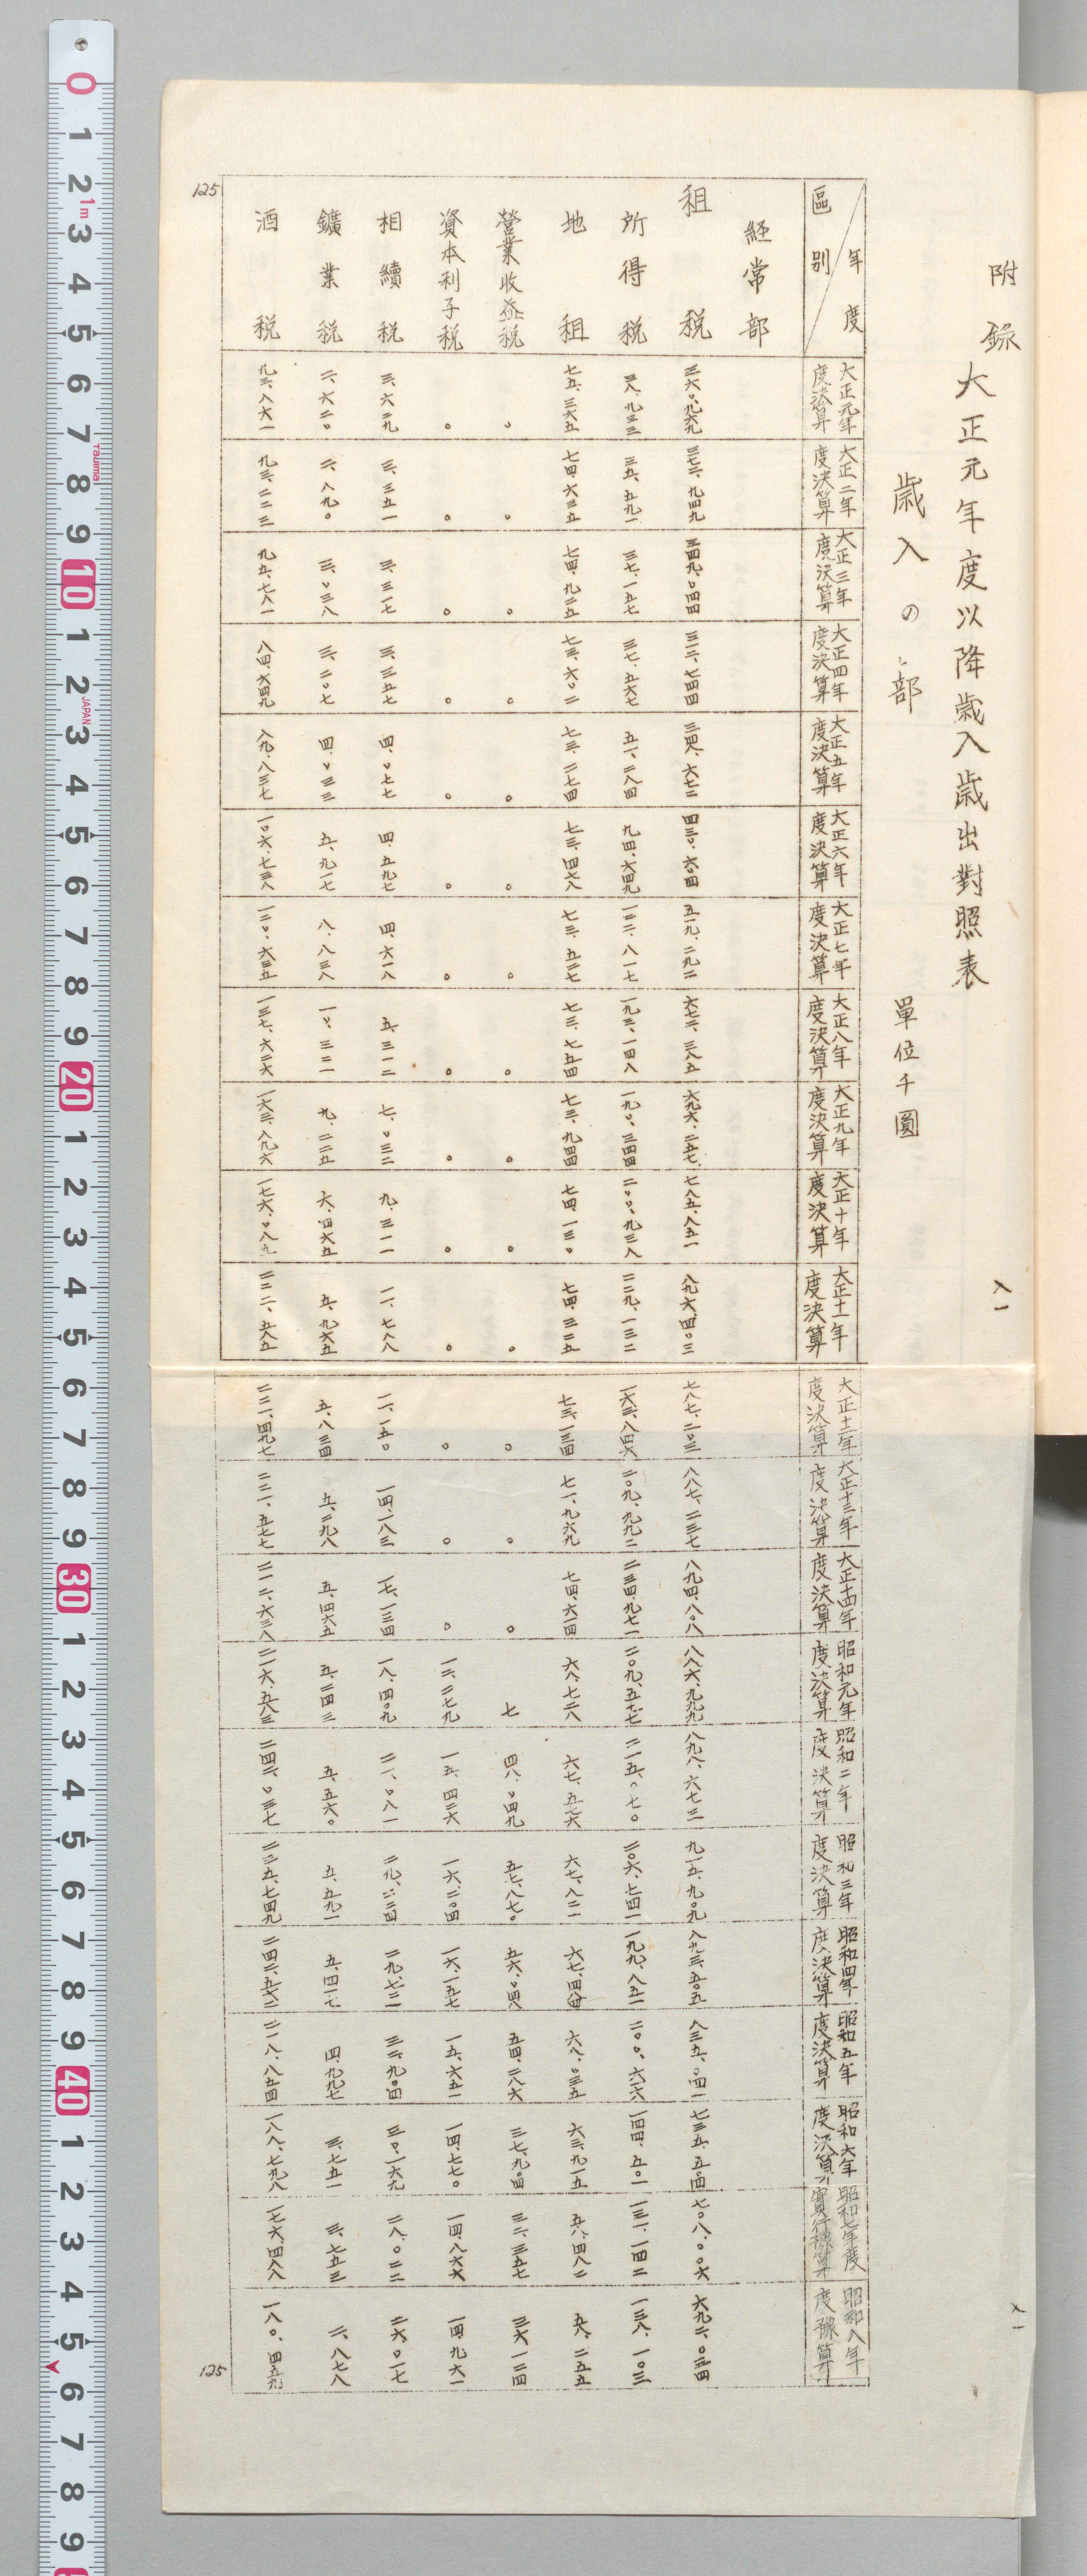 附錄
大正元年度以降歳入歳出對照表
歳入の部
單位千圓
年度
區別
大正元年度決算
大正二年度決算
大正三年度決算
大正四年度決算
大正五年度決算
大正六年度決算
大正七年度決算
大正八年度決算
大正九年度決算
大正十年度決算
大正十一年度決算
大正十二年度決算
大正十三年度決算
大正十四年度決算
昭和元年度決算
昭和二年度決算
昭和三年度決算
昭和四年度決算
昭和五年度決算
昭和六年度決算
昭和七年度實行豫算
昭和八年度豫算
経常部
租税 三六〇、九六九 三七二、九四九 三四九、〇四四 三一二、七四四 三四八、六七二 四三〇、六〇四 五一九、二九二 六七二、三八五 六九六、二五七 七八五、八五一 八九六、四〇三 七八七、二〇三 八八七、二三七 八九四、八〇八 八八六、九九九 八九八、六七三 九一五、九〇九 八九三、五〇五 八三五、〇四一 七三五、五〇四 七〇八、〇〇六 六九二、〇三四
所得税 三八、九三三 三五、五九一 三七、一五七 三七、五六七 五一、二八四 九四、六四九 一二二、八一七 一九三、一四八 一九〇、三四四 二〇〇、九三八 二二九、一三二 一六三、八四六 二〇九、九九二 二三四、九七一 二〇九、五七七 二一五、〇七〇 二〇六、七四一 一九九、八五一 二〇〇、六一六 一四四、五〇一 一三一、一四二 一三八、一〇三
地租 七五、三六五 七四、六三五 七四、九二五 七三、六〇二 七三、二七四 七三、四七八 七三、五二七 七三、七五四 七三、九四四 七四、一三〇 七四、三二五 七三、一三四 七一、九六九 七四、六一四 六八、七二八 六七、五七六 六七、八二一 六七、四八四 六八、〇三五 六三、九一五 五八、四八二 五八、二五五
營業收益税 〇 〇 〇 〇 〇 〇 〇 〇 〇 〇 〇 〇 〇 〇 七 四八、〇四九 五七、八七〇 五六、〇四八 五四、二八六 三七、九〇四 三二、三五七 三六、一二四
資本利子税 〇 〇 〇 〇 〇 〇 〇 〇 〇 〇 〇 〇 〇 〇 一二、二七九 一五、四二六 一六、二〇四 一六、一五七 一五、六五一 一四、七七〇 一四、八六六 一四、九六一
相續税 三、六二九 三、三五一 三、三一七 三、三五七 四、〇七七 四、五九七 四、六一八 五、三一二 七、〇三二 九、三一一 一一、七八八 一一、一五〇 一四、一八三 一七、一三四 一八、四〇九 二一、〇八一 二九、二二四 二九、七二一 三二、九〇四 三〇、一六九 二八、〇二二 二六、〇一七
鑛業税 二、六二〇 二、八九〇 三、〇三八 三、二〇七 四、〇三三 五、九一七 八、八三八 一〇、三二一 九、二二五 六、四六五 五、九六五 五、八三四 五、二九八 五、四六五 五、二四三 五、五六〇 五、五九一 五、四一七 四、九九七 三、七五一 三、七五三 二、八七八
酒税 九三、八六一 九三、二二三 九五、七八一 八四、六四九 八九、八三七 一〇六、七三八 一二〇、六三五 一三七、六二六 一六三、八九六 一七六、〇八九 二二二、五八五 二二一、四九七 二二一、五七七 二一二、六三八 二一六、五八三 二四二、〇三七 二三五、七四九 二四二、五七二 二一八、八五四 一八八、七九八 一七六、四八八 一八〇、四五九
八一
125
125
0 1 2 1m 3 4 5 6 7 Tajima 8 9 10 1 2 JAPAN 3 4 5 6 7 8 9 20 1 2 3 4 5 6 7 8 9 30 1 2 3 4 5 6 7 8 9 40 1 2 3 4 5 6 7 8 9